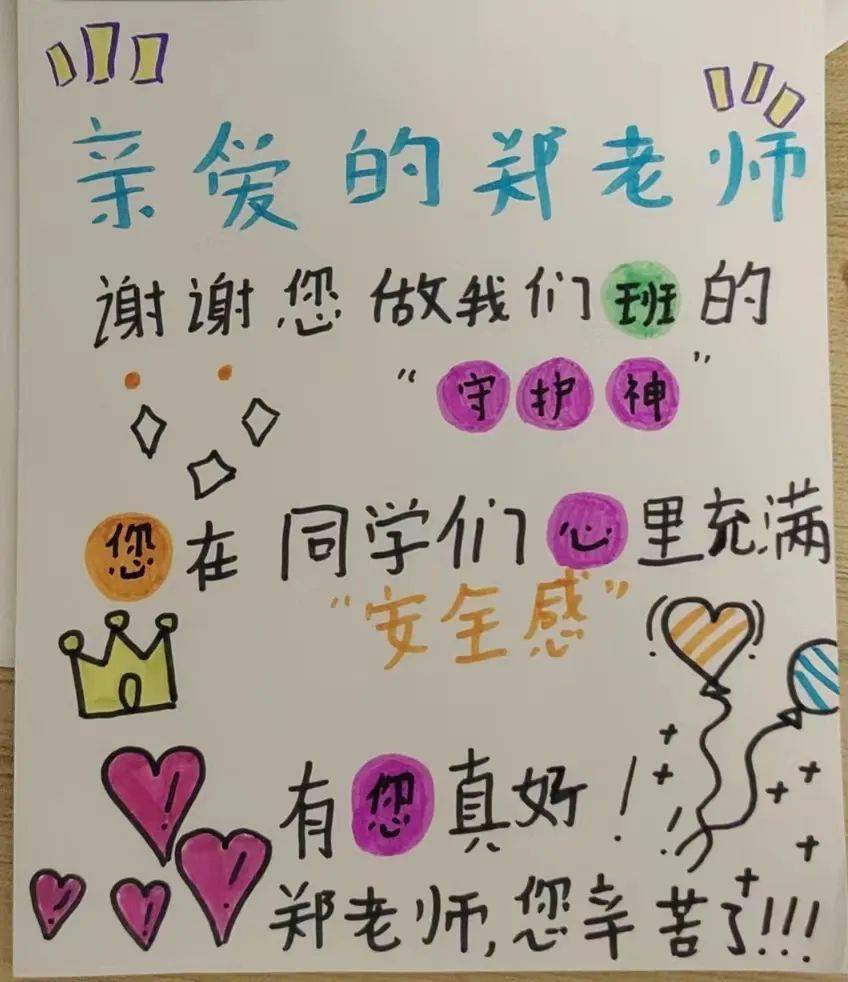 亲爱的郑老师
谢谢您做我们班的
“守护神”
您在同学们心里充满
“安全感”
有您真好!
郑老师,您辛苦了!!!